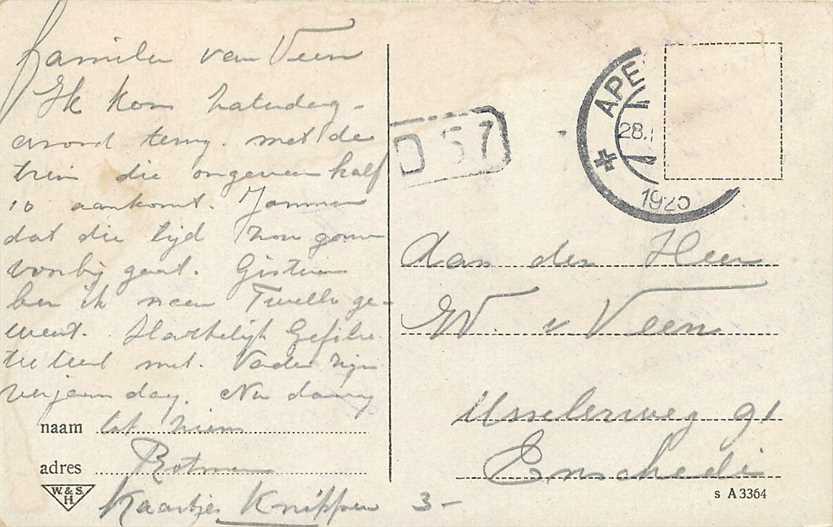 familie van Veen
Ik kom Saterdag-
avond terug. met de
trein die ongeveer half
10 aankomt. Jammer
dat die tijd zoo gauw
voorbij gaat. Gisteren
ben ik naar Twello ge-
weest. Hartelijk Gefilic-
teteerd met Vader zijn
verjaardag. Nu dammy
naam tot ziens
adres Rotman
Kaartjes Knippen 3-
W. & S.
H.
D 57
APE
28.
1925
Aan den Heer
W. v Veen
Usselerweg 91
Enschede
s A 3364